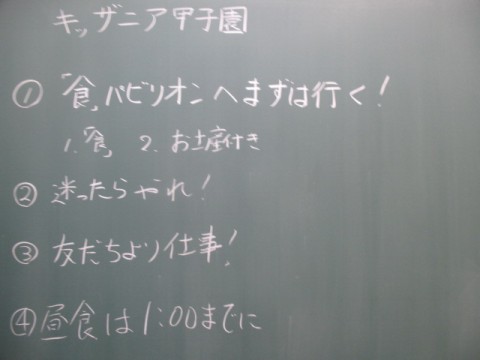 キッザニア甲子園
① 「食」パビリオンへまずは行く！
1.「食」 2. お土産付き
② 迷ったらやれ！
③ 友だちより仕事！
④ 昼食は1:00までに